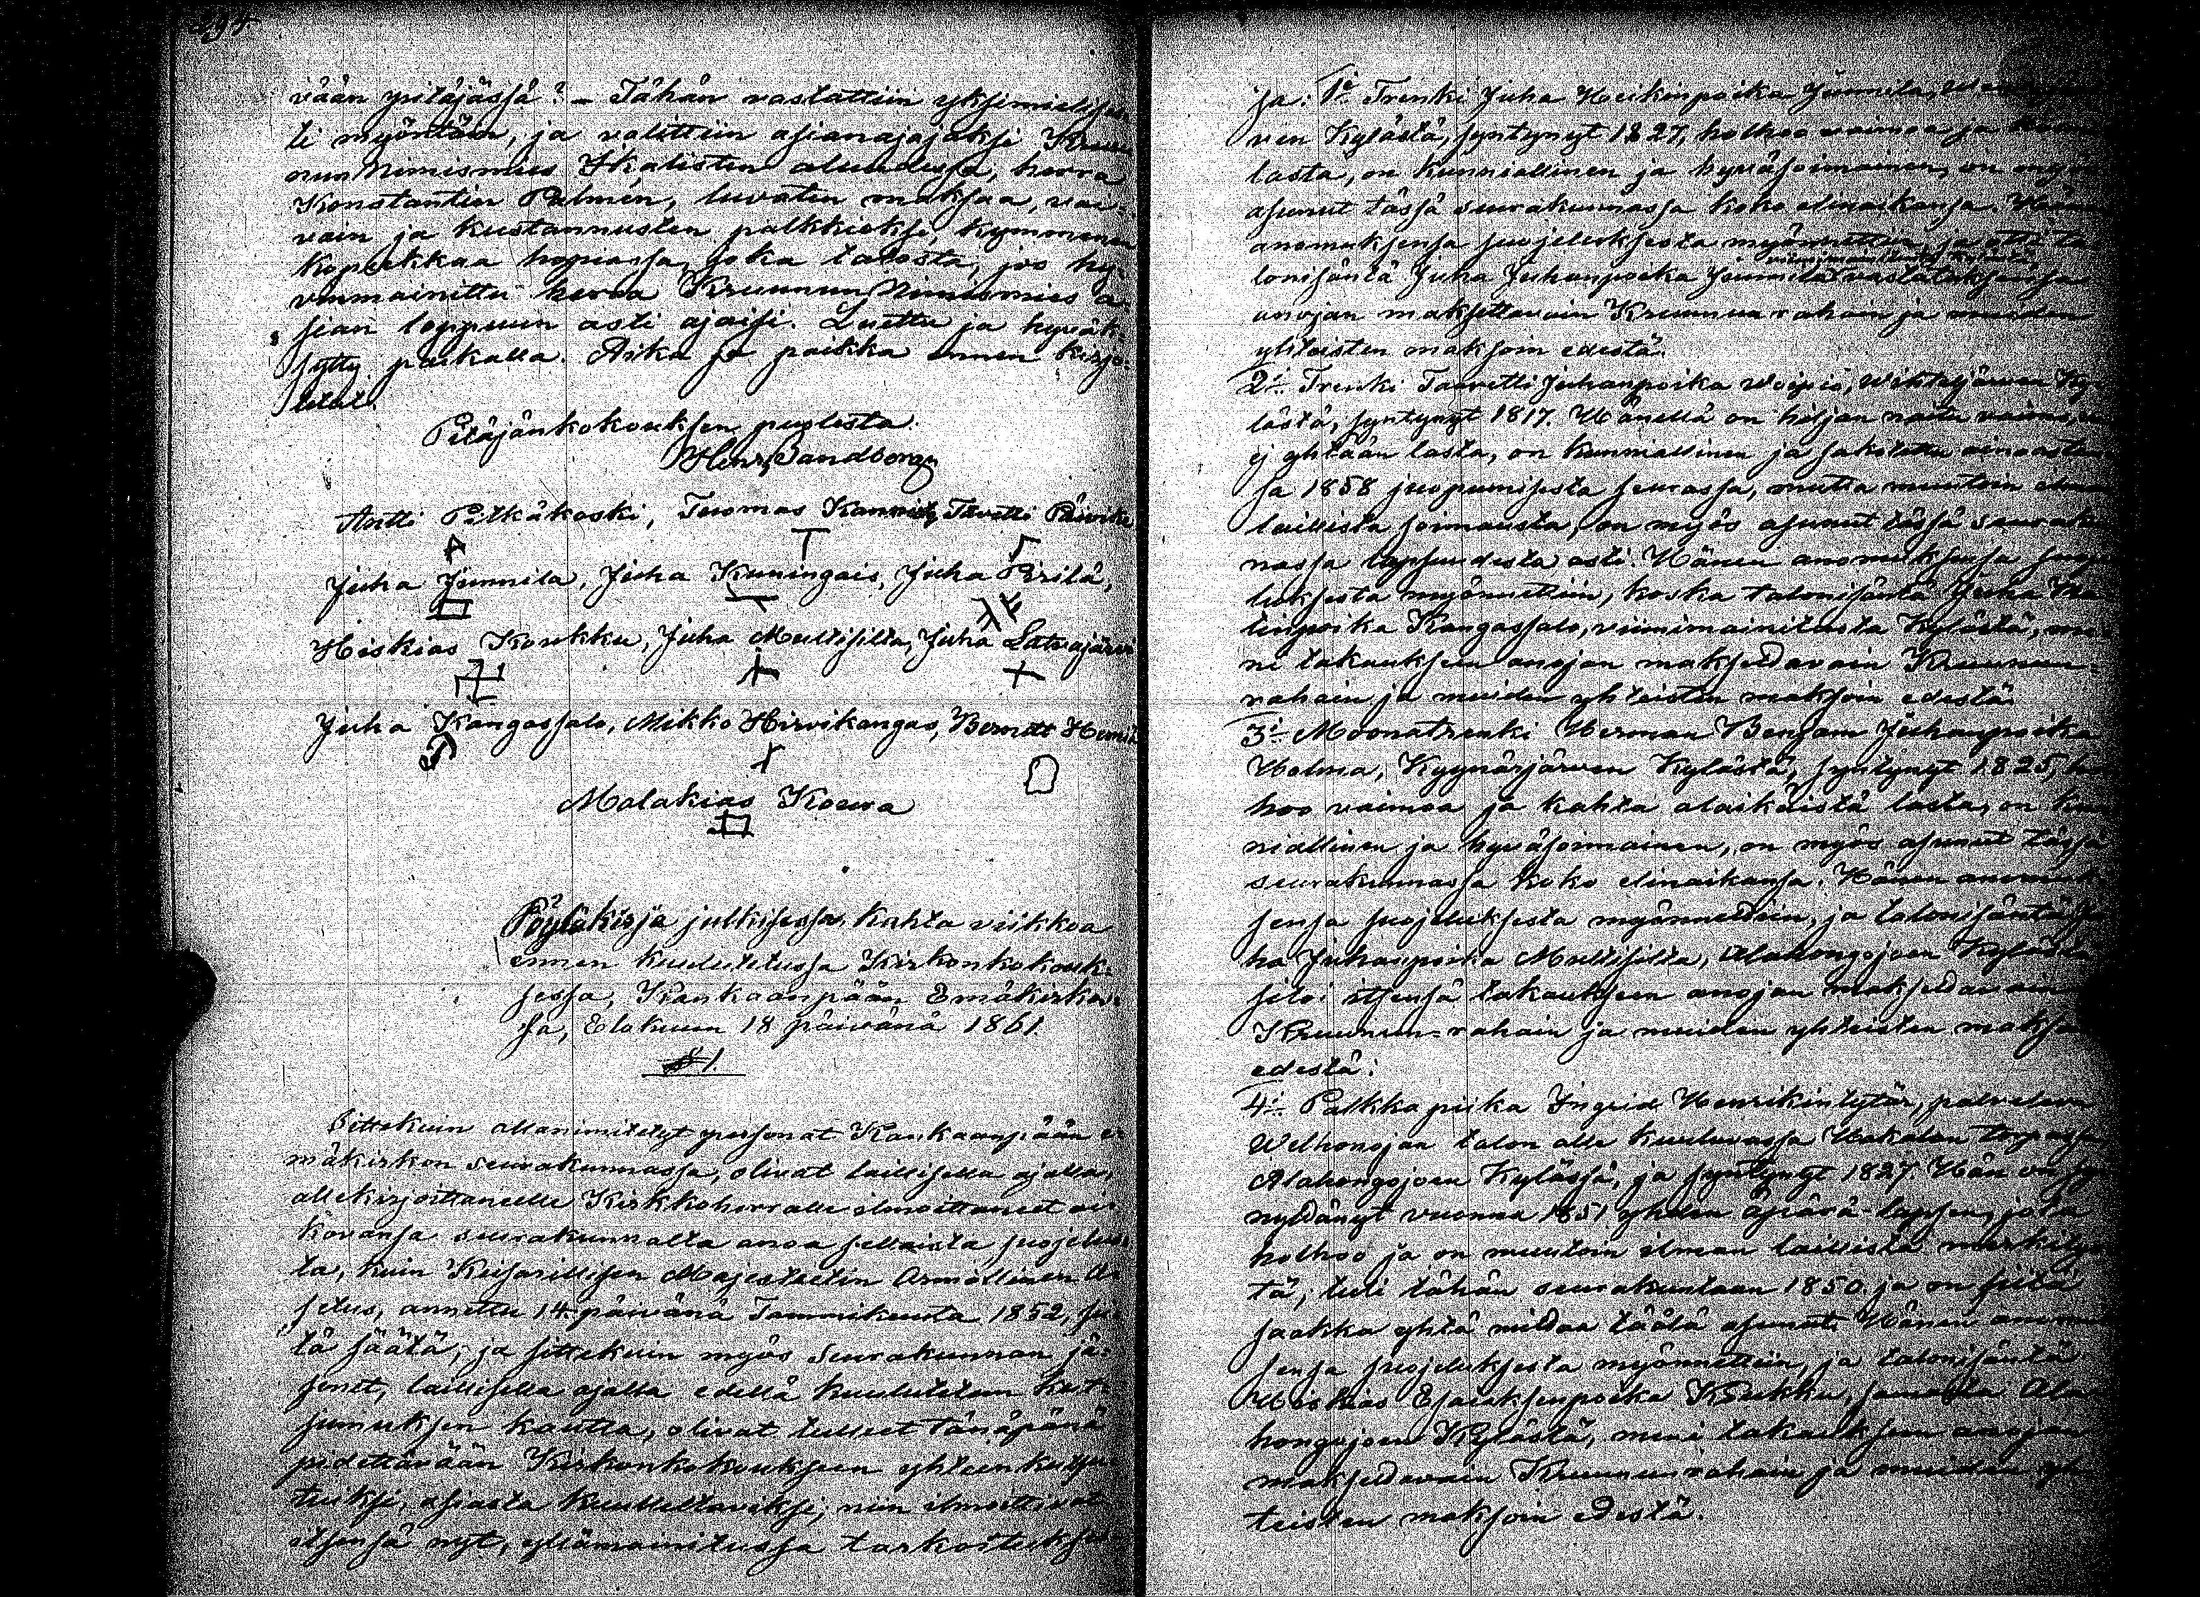 294
vään pitäjässä? – Tähän vastattiin yksimielises-
ti myöntäen, ja valittiin asianajajaksi Kruu-
nun Nimismies Ikalisten alueelussa, herra
Konstantin Palmén, luvaten maksaa, vai-
vain ja kustannusten palkkioksi, kymmenen
kopeekkaa hopiassa, joka talosta, jos hy-
vinmainittu herra Kruunun Nimismies a-
sian loppuun asti ajaisi. Luettu ja hyväk-
sytty paikalla. Aika ja paikka ennen kirjo-
tetut.
Pitäjänkokouksen puolesta.
Henr. Sandborg
Antti Pitkäkoski, Tuomas Kannisto, Tavetti
Juha Junnila, Juha Kuningais, Juha Prisilä,
Hiskias Koukku, Juha Multisilta, Juha Latvajärvi
Juha Kangassalo, Mikko Hirvikangas, Bernett
Malakias Koura
Pöytäkirja julkisessa, kahta viikkoa
ennen kuulutetussa Kirkonkokouk-
sessa, Kankaanpään Emäkirkos-
sa, Elokuun 18 päivänä 1861.
§ 1.
Sittekuin allanimitetyt personat Kankaanpään e-
mäkirkon seurakunnassa, olivat laillisella ajalla,
allekirjoittaneelle Kirkkoherralle ilmoittaneet ai-
kovansa seurakunnalta anoa sellaista suojelus-
ta, kuin Keisarillisen Majesteetin Armollinen A-
setus, annettu 14 päivänä Tammikuuta 1852, sii-
tä säätä, ja sittekuin myös Seurakunnan jä-
senet, laillisella ajalla edellä kuulutetun kut-
sumuksen kautta, olivat tulleet tänäpänä
pidettävään Kirkonkokoukseen yhteenkutsu-
tuiksi, asiasta kuulleltaviksi; niin ilmoittivat
itsensä nyt, yllämainitussa tarkoitukses-
sa: 1:o Trenki Juha Heikinpoika Junnila,
ven Kylästä, syntynyt 1827, holhoo vaimoa ja
lasta, on kunniallinen ja hyväsoimainen, on myös
asunut tässä seurakunnassa koko elinaikansa. Hänen
anomuksensa suojeluksesta myönnettiin, ja otti ta-
lonisäntä Juha Juhanpoika Junnila vastataksensa
anojan maksettavain Kruunun rahain ja muiden
yhteisten maksoin edestä.
2:o Trenki Taavetti Juhanpoika Woipio, Wihtejärven Ky-
lästä, syntynyt 1817. Hänellä on hiljan naitu vaimo,
ej yhtään lasta, on kunniallinen ja sakotettu ainoasten
sa 1858 juopumisesta seurassa, mutta muutoin
laillista soimausta, on myös asunut tässä seurakun-
nassa lapsuudesta asti. Hänen anomuksensa suoje-
luksesta myönnettiin, koska talonisäntä Juha
tinpoika Kangassalo, viimimainitusta Kylästä, me-
ni takaukseen anojan makseldavain Kruunun-
rahain ja muiden yhteisten maksoin edestä.
3:o Moonatrenki Herman Benjam Juhanpoika
Holma, Kyynärjärven Kylästä, syntynyt 1825, hol-
hoo vaimoa ja kahta alaikäistä lasta, on kun-
niallinen ja hyväsoimainen, on myös asunut tässä
seurakunnassa koko elinaikansa. Hänen anomuk-
sensa suojeluksesta myönneldiin, ja talonisäntä Ju-
ha Juhanpoika Multisilta, Alahongojoen Kylästä
sitoi itsensä takaukseen anojan makseldavain
Kruunun-rahain ja muiden yhteisten maksoin
edestä.
4:o Palkkapiika Ingrid Henrikintytär, palveleva
Welhonojan talon alle kuuluvassa Hakalan torpassa
Alahongojoen Kylässä, ja syntynyt 1827. Hän on syn-
nyldänyt vuonna 1851 yhden äpärä-lapsen, jota
holhoo ja on muutoin ilman laillista
tä, tuli tähän seurakuntaan 1850 ja on siitä
saakka yhtä mildaa täälä asunut. Hänen anomuk-
sensa suojeluksesta myönnettiin, ja talonisäntä
Hiskias Esaiaksenpoika Koukku, samasta Ala-
hongojoen Kylästä, meni takaukseen anojan
makseldavain Kruunun rahain ja muidan yh-
teisten maksoin edestä.